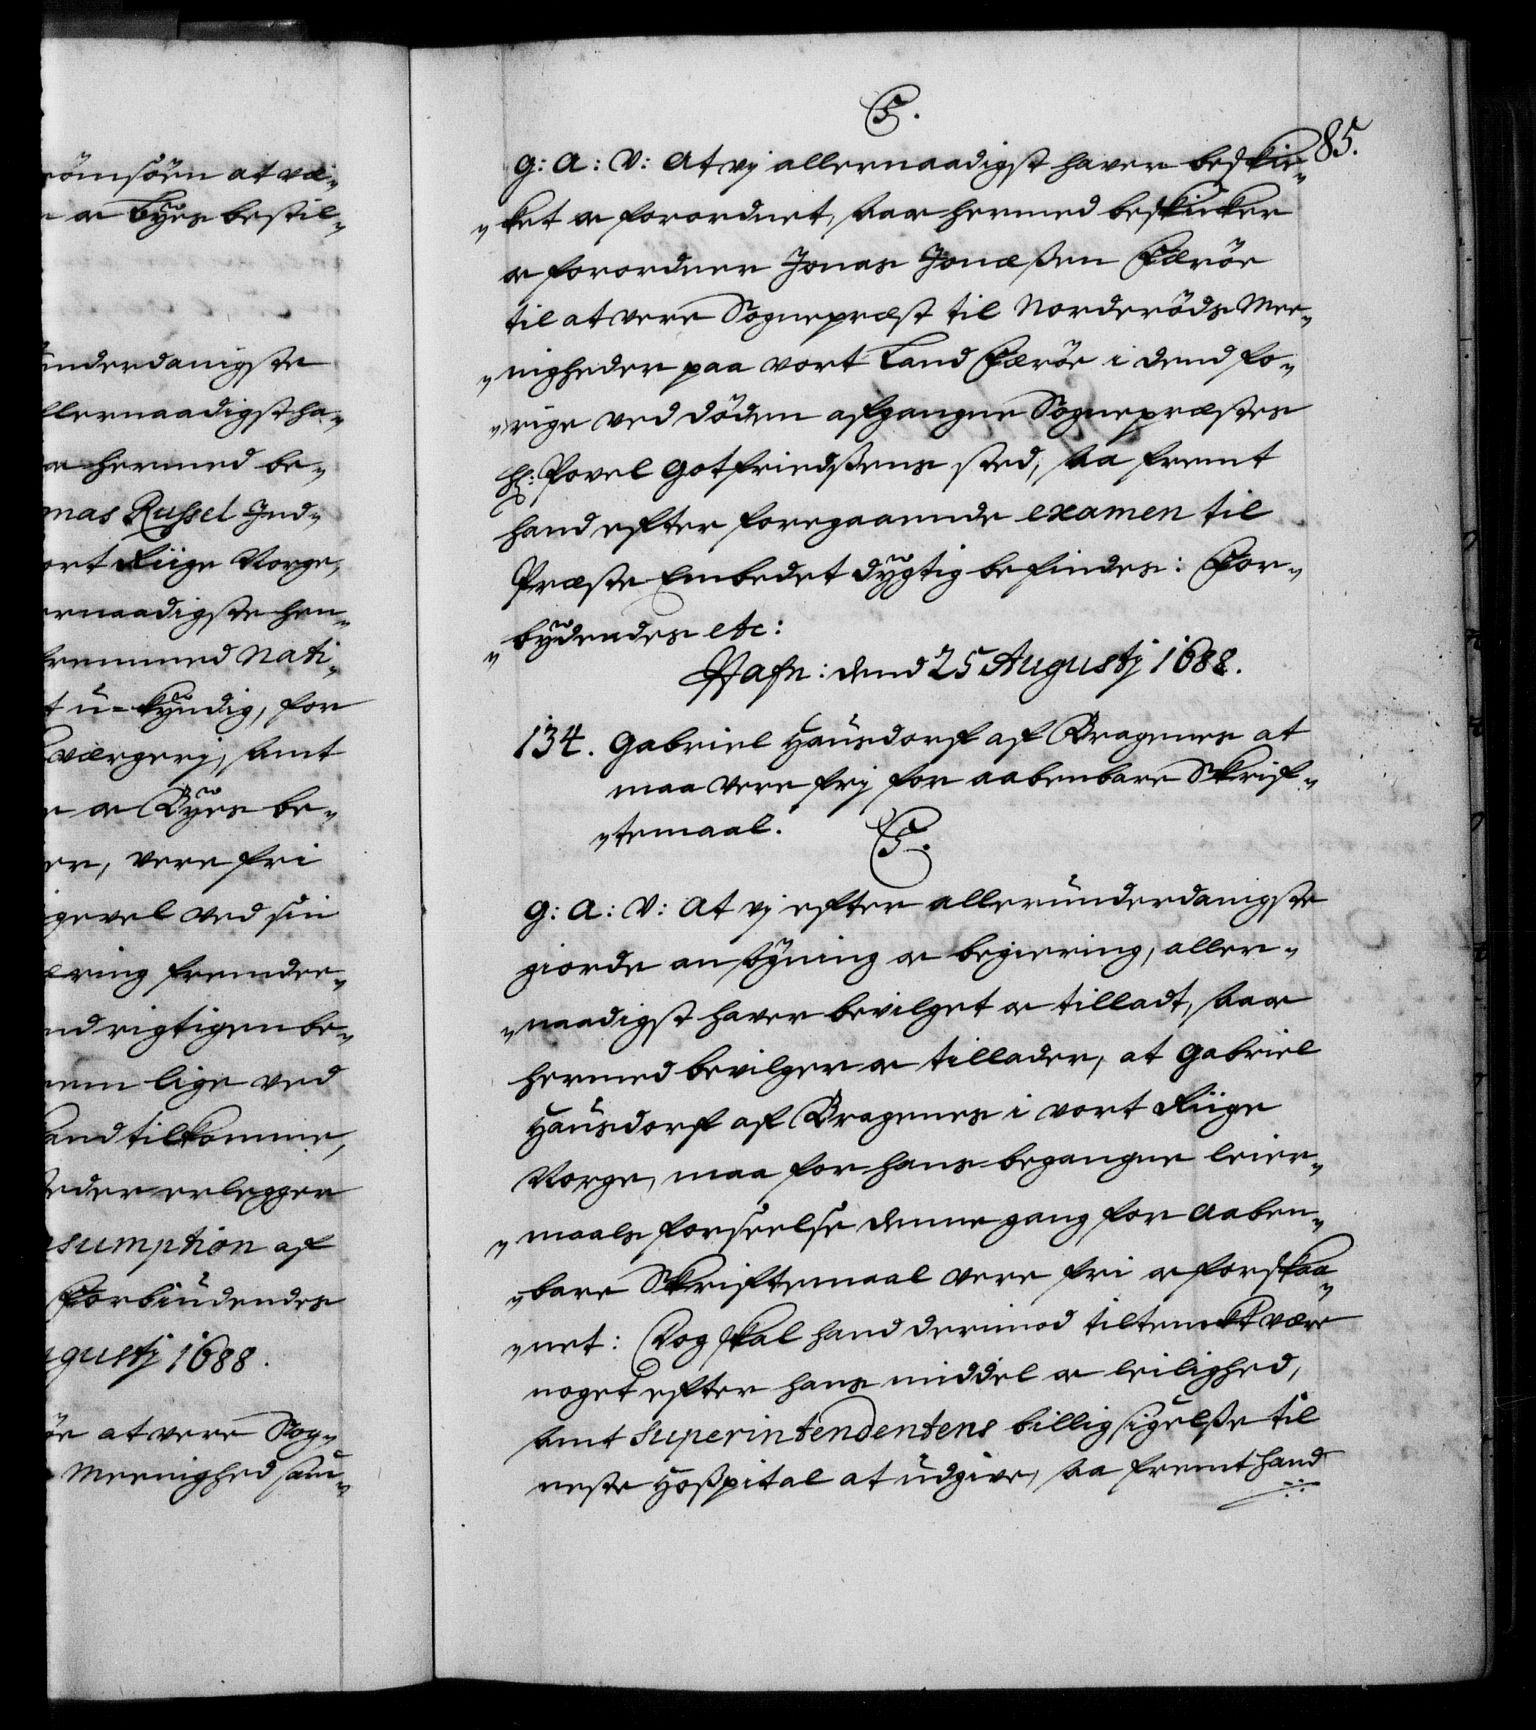 römsöen at væ-
r oc Byes bestil-
underdanigste
llernaadigst ha-
oc hermed be-
mas Russel Ind-
ort Riige Norge,
ernaadigste hen-
fremmed Nati-
t u-kyndig, for
værgerj, samt
e oc Byes be-
er, vere fri
gevel ved sin
æring fremdee-
nd rigtigen be-
nem lige ved
and tilkomme,
eder erlegger
sumption af
Forbiudendes
gustj 1688.
öe at vere Sog-
Meenighed sam-
85.
C5.
G: A: V: At vj allernaadigst haver beskic-
ket oc forordnet, saa oc hermed beskicker
oc forordner Jonas Jonæßen Færöe
til at vere Sognepræst til Norderöds Mee-
nigheder paa vort Land Færöe i dend fo-
rige ved döden afgangne Sognepræstes
Hr: Povel Gotfriedßens sted, saa fremt
hand efter foregaaende examen til
Præste Embedet dygtig befindes: For-
bydendes etc:
Hafn: dend 25 Augustj 1688.
134. Gabriel Hausdorf af Bragenes at
maa vere frj for aabenbare Skrif-
temaal.
C5.
G: A: V: At vj efter allerunderdanigste
giorde ansögning oc begiering, aller-
naadigst haver bevilget oc tilladt, saa oc
hermed bevilger oc tillader, at Gabriel
Hausdorf af Bragenes i vort Riige
Norge, maa for hans begangne leier-
maals forseelse denne gang for aaben-
bare Skriftemaal vere fri oc forskaa-
net: Dog skal hand derimod tiltenckt være
noget efter hans middel oc leilighed,
samt Superintendentens billig sigelße til
neste Hoßpital at udgive, saa fremt hand